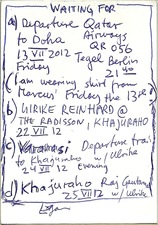 WAITING FOR
a) Departure Qatar
to Doha Airways
13 VII 2012 QR 056
Friday Tegel Berlin
21 40
(I am wearing shirt from
Marcus' Friday the 13th)
b) ULRIKE REINHARD @
THE RADISSON, KHAJURAHO
22 VII 12
c) Varanasi Departure train
to Khajuraho w/ Ulrike
24 VII 12 evening
d) Khajuraho Raj Gautam
25 VII 12 w/ Ulrike